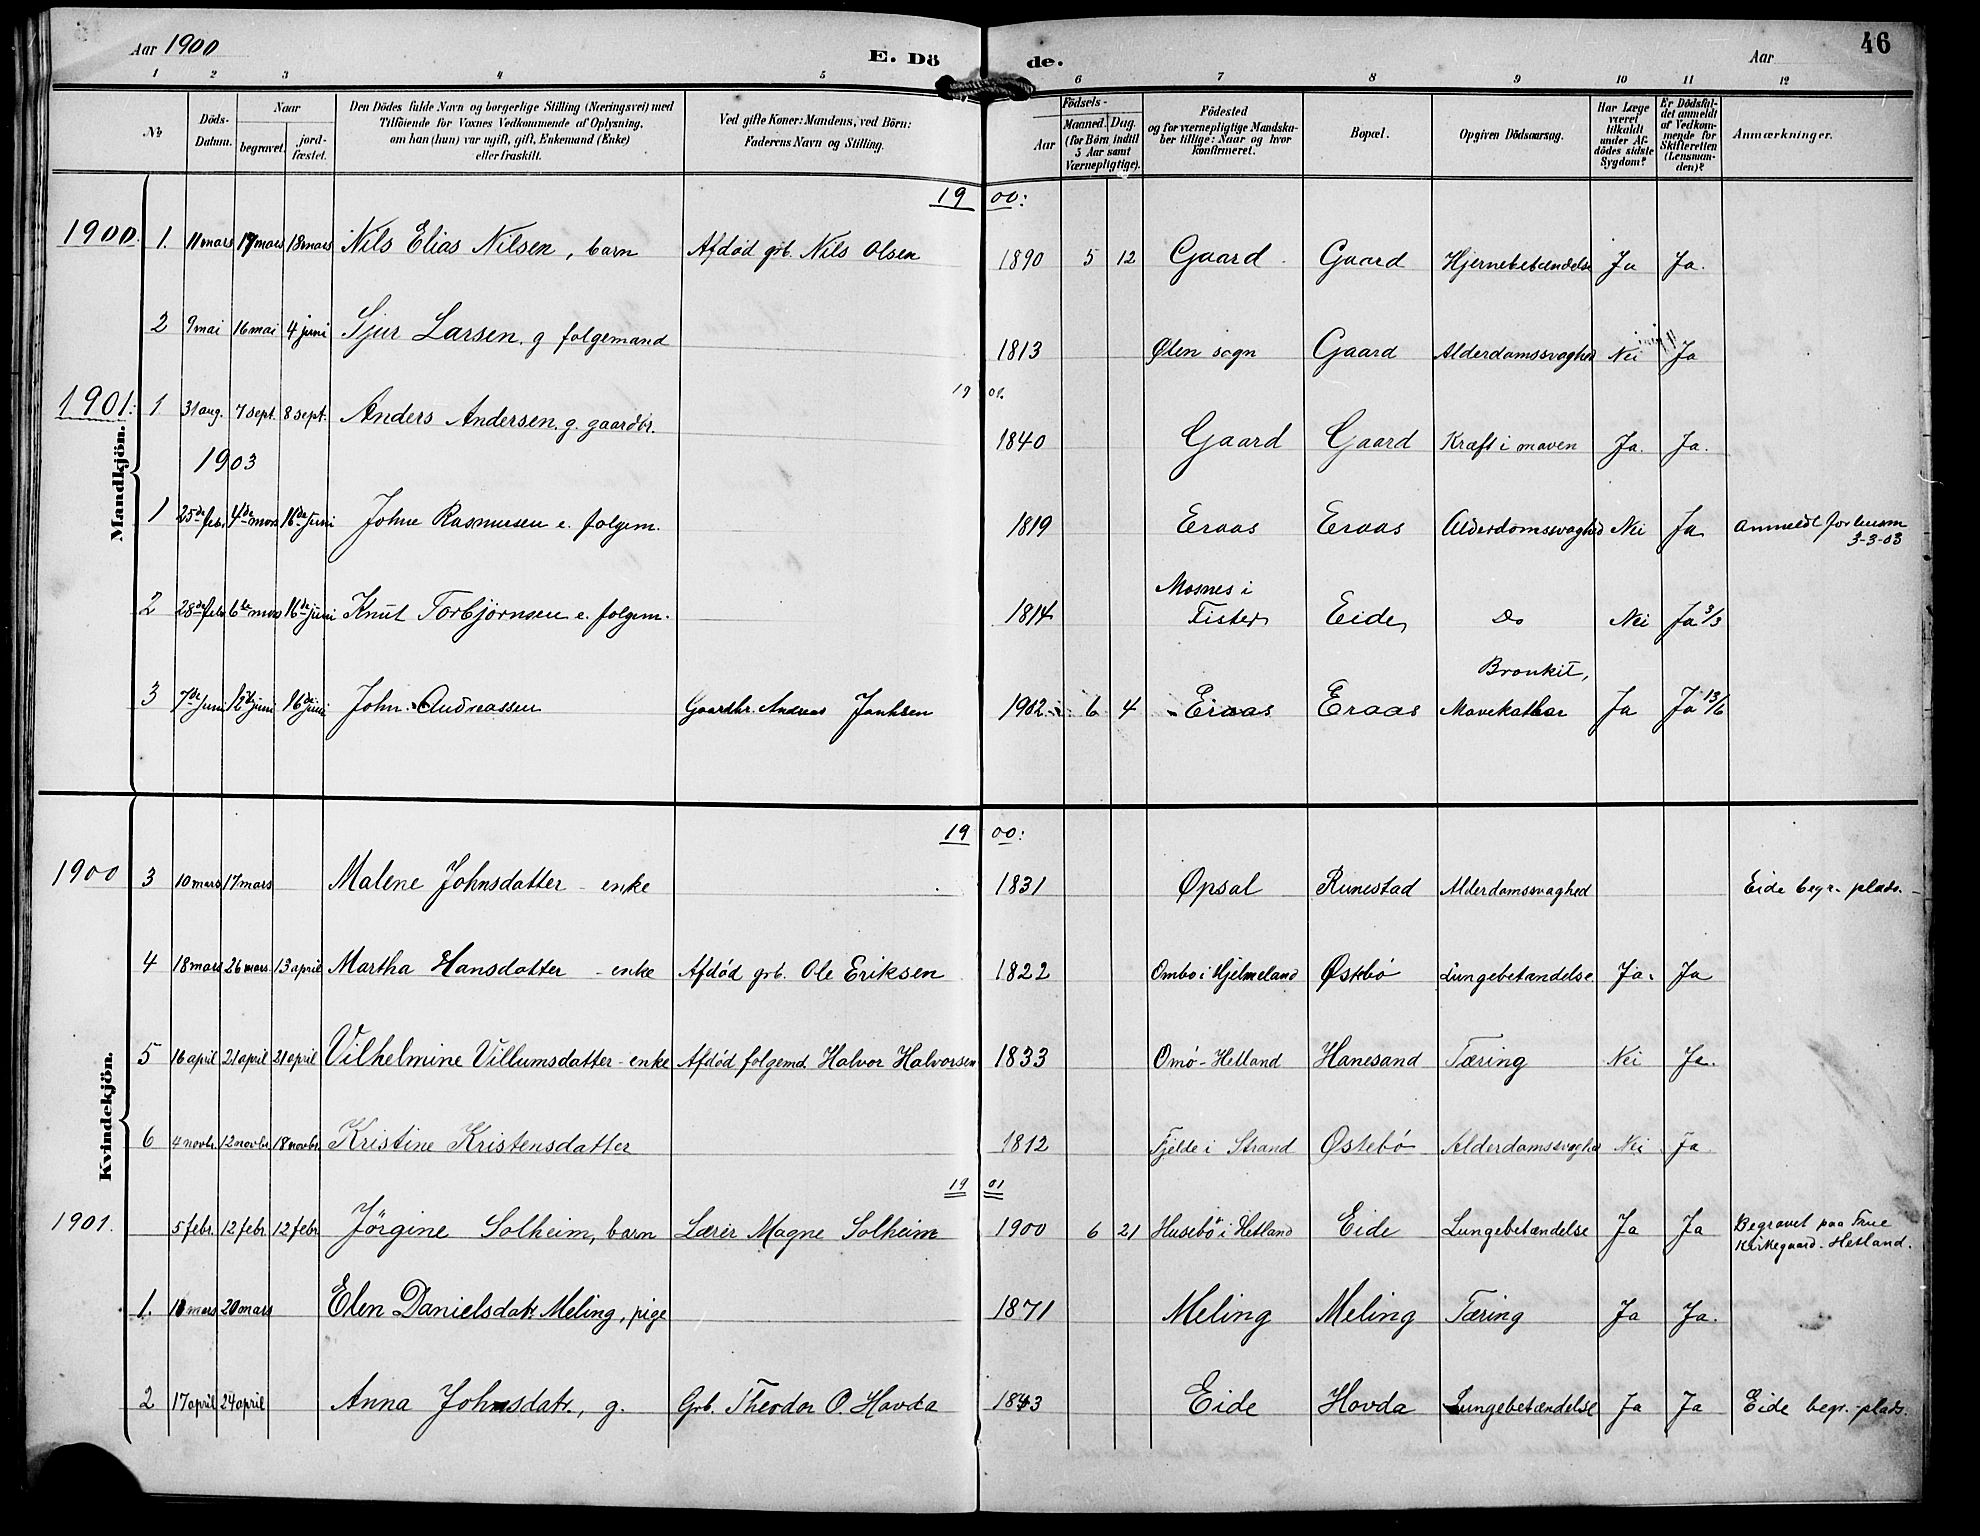 Aar 1900 E. Dö de. Aar 46
1 2 3 4 5 6 7 8 9 10 11 12
No Döds-Datum. Naar begravet. jord-fæstet. Den Dödes fulde Navn og borgerlige Stilling (Næringsvei) med Tilföiende for Voxnes Vedkommende af Oplysning, om han (hun) var ugift, gift, Enkemand (Enke) eller fraskilt. Ved gifte Koner: Mandens, ved Börn: Faderens Navn og Stilling. Födsels- Aar Maaned. Dag. (for Börn indtil 5 Aar samt Værnepligtige). Födested og for værnepligtige Mandskaber tillige: Naar og hvor konfirmeret. Bopæl. Opgiven Dödsaarsag. Har Læge været tilkaldt under Afdödes sidste Sygdom? Er Dödsfaldet anmeldt af Vedkommende for Skifteretten (Lensmanden)? Anmærkninger.
Mandkjön.
19 00:
1900. 1. 11 mars 17 mars 18 mars Nils Elias Nilsen, barn Afdød grb. Nils Olsen 1890 5 12 Gaard Gaard Hjernebetændelse Ja Ja.
2 9 mai 16 mai 4 juni Sjur Larsen. g folgemand 1813 Ølen sogn Gaard Alderdomssvaghed Nei Ja
19 01.
1901: 1 31 aug. 7 sept. 8 sept. Anders Andersen. g. gaardbr. 1840 Gaard Gaard Kræft i maven Ja. Ja.
1903
1 25de febr. 4de mars 16de juni Johne Rasmusen e. folgem. 1819 Eraas Eraas Alderdomssvaghed Nei Ja Anmeldt for lensm
3-3-03
2 28de febr 6te mars 16de juni Knut Torbjørnsen e. folgem. 1814 Mosnes i
Fister Eide Do Nei Ja 3/3
3 7de juni 12te juni 16de juni John Andreassen Gaardbr. Andreas Jonhsen 1902 6 4 Eraas Eraas Bronkit,
Mavekatar Ja Ja 13/6
Kvindekjön.
19 00:
1900 3 10 mars 17 mars Malene Johnsdatter - enke 1831 Opsal Runestad Alderdomssvaghed Eide begr. plads.
4 18 mars 26 mars. 13 april Martha Hansdatter - enke Afdød grb. Ole Eriksen 1822 Ombo i Hjelmeland Østebø Lungebetændelse. Ja. Ja
5 16 april 21 april 21 april Vilhelmine Villumsdatter - enke Afdød folgemd. Halvor Halvorsen 1833 Omø - Hetland Hanesand Tæring Nei Ja.
6 4 novbr. 12 novbr. 18 novbr. Kristine Kristensdatter 1812 Fjelde i Strand Østebø Alderdomssvaghed Nei Ja
19 01
1901. 5 febr. 12 febr. 12 febr Jørgine Solheim, barn Lærer Magne Solheim 1900 6 21 Husebø i Hetland Eide Lungebetændelse Ja Ja Begravet paa Frue
Kirkegaard - Hetland.
1. mars 20 mars Elen Danielsdatr. Meling, pige 1871 Meling Meling Tæring Ja Ja.
2 17 april 24 april Anna Johnsdatr., g. Grb. Theodor O. Hovda 1843 Eide Hovda Lungebetændelse Ja Ja Eide begr.-plads.